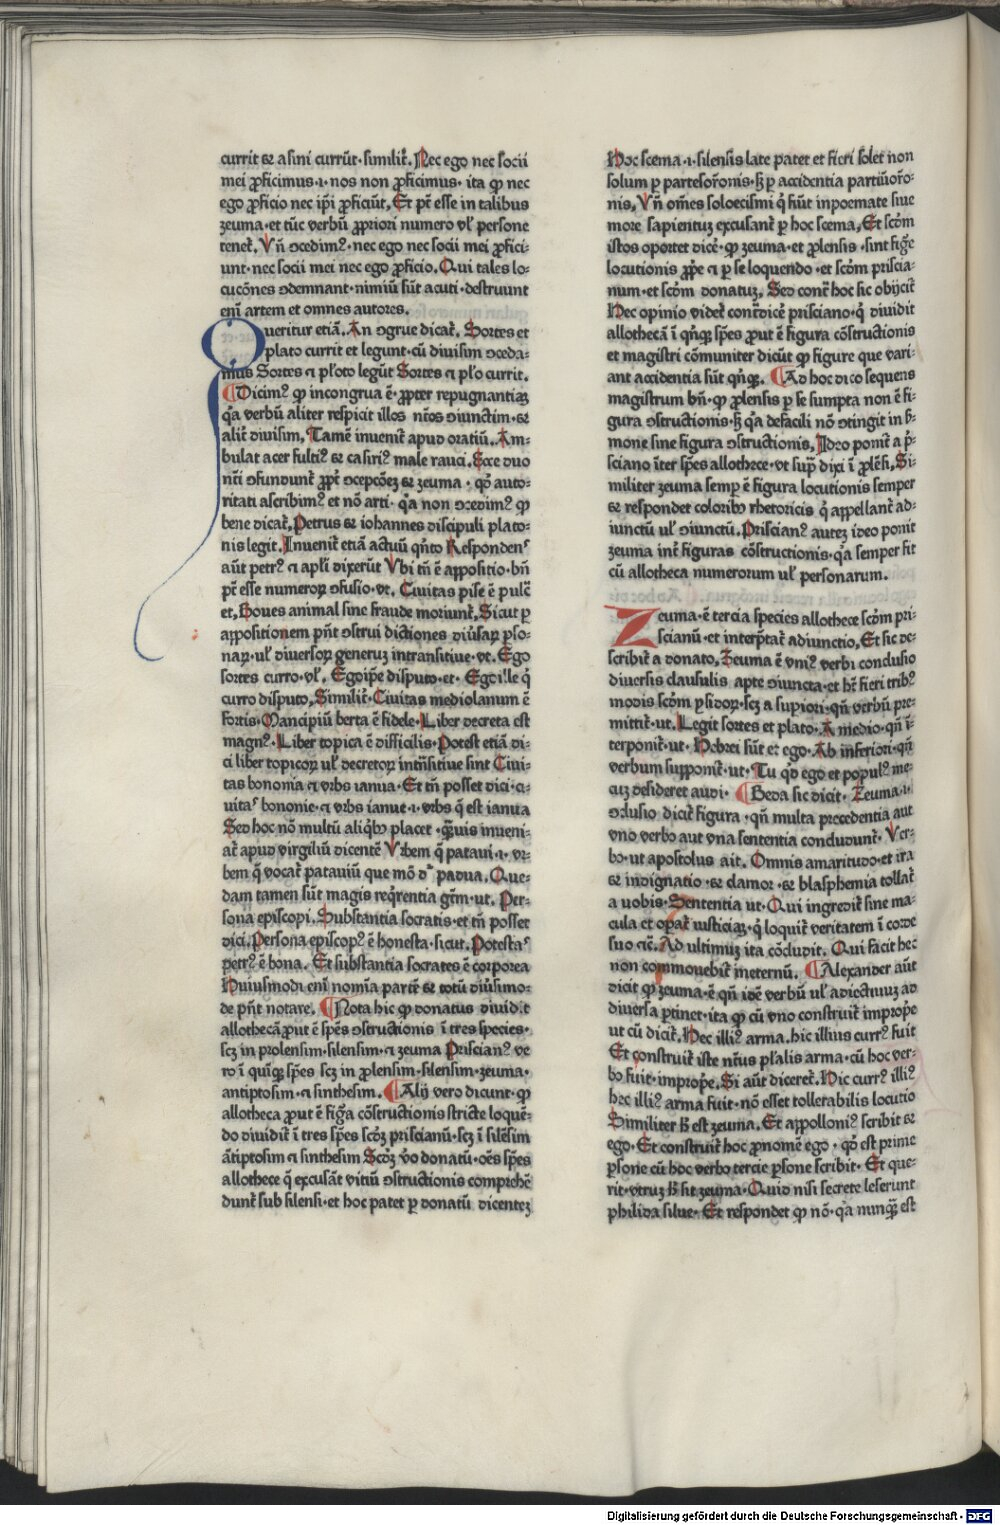 currit ⁊ asini currūt·similiť. Nec ego nec socii
mei ꝓficimus·i·nos non ꝓficimus·ita ꝙ nec
ego ꝓficio nec ip̄i ꝓficiūt, Et pt̄ esse in talibus
zeuma·et tūc verbū ꝓpriori numero vl̓ persone
tenet᷑. Vn̄ ↄcedimꝰ·nec ego nec socii mei ꝓfici⸗
unt·nec socii mei nec ego ꝓficio. Qui tales lo⸗
cucōnes ↄdemnant·nimiū sūt acuti·destruunt
eni᷑ artem et omnes autores.
Queritur etiā. An ↄgrue dicat᷑. Sortes et
plato currit et legunt·cū diuisim ↄceda⸗
mus Sortes ⁊ pl̓oto legūt Sortes ⁊ pl̓o currit.
¶Dicimꝰ ꝙ incongrua ē·ꝓpter repugnantiaꝫ
q̓a verbū aliter respicit illos nt̄os ↄiunctim·⁊
alit᷑ diuisim, Tamē inuenit᷑ apud oratiū. Am⸗
bulat acer fultiꝰ ⁊ casiriꝰ male rauci. Ecce duo
nt̄i ↄfundunt᷑ ꝓpt᷑ ↄcepcōeꝫ ⁊ zeuma·qd̓ auto⸗
ritati ascribimꝰ et nō arti·q̓a non ↄcedimꝰ ꝙ
bene dicat᷑, Petrus ⁊ iohannes discipuli plato⸗
nis legit. Inuenit᷑ etiā actuū qn̓to Respondenˢ
aūt petrꝰ ⁊ apl̓i dixerūt Vbi tn̄ ē appositio·bn̄
pt̄ esse numeroꝝ ↄfusio·vt. Ciuitas pise ē pulc᷑
et, Boues animal sine fraude moriunt᷑. Sicut ꝑ
appositionem pn̄t ↄstrui dictiones diūsaꝝ ꝑso⸗
naꝝ·ul̓ diuersoꝝ generuꝫ intransitiue·vt·Ego
sortes curro·vl̓. Egoip̄e disputo·et·Egoille q̓
curro disputo, Similit᷑·Ciuitas mediolanum ē
fortis·Mancipiū berta ē fidele·Liber decreta est
magnꝰ·Liber topica ē difficilis·Potest etiā di⸗
ci liber topicoꝝ ul̓ decretoꝝ intn̄sitiue sint Ciui⸗
tas bononia ⁊ vrbs ianua·Et tn̄ posset dici·ci⸗
uitaˢ bononie·⁊ vrbs ianue·i·vrbs q̄ est ianua
Sed hoc nō multū aliq̓bꝫ placet·qͣuis inueni⸗
at᷑ apud virgiliū dicentē Vrbem q̄ pataui·i·vr⸗
bem q̄ vocat᷑ patauiū que mō dr̄ padua. Que⸗
dam tamen sūt magis reqͥrentia gt̄m·ut. Per⸗
sona episcopi. Substantia socratis·et tn̄ posset
dici. Persona episcopꝰ ē honesta·sicut. Potestaˢ
petrꝰ ē bona. Et substantia socrates ē corporea
Huiusmodi eni᷑ nomi̅a partē ⁊ totū diūsimo⸗
de pn̄t notare. ¶Nota hic ꝙ donatus diuidit
allothecā ꝓut ē spēs ↄstructionis i᷑ tres species·
scꝫ in prolensim·silensim·⁊ zeuma Prisciānꝰ ve
ro i᷑ quiꝗꝫ spēs scꝫ in ꝓlensim·silensim·zeuma·
antiptosim·⁊ sinthesim. ¶Alij vero dicunt·ꝙ
allotheca ꝓut ē fig̓a cōstructionis stricte loquē⸗
do diuidit᷑ i᷑ tres spēs scd̓ꝫ priscianū·scꝫ i᷑ silēsim
ātiptosim ⁊ sinthesim Scd̓ꝫ v̓o donatū·oēs spēs
allothece q̄ excusāt vitiū ↄstructionis comprehē
dunt᷑ sub silensi·et hoc patet ꝑ donatū dicenteꝫ
Hoc scema·i·silensis late patet et fieri solet non
solum ꝑ partesor̄onis·sꝫ ꝑ accidentia partiūor̄o⸗
nis, Vn̄ om̄es soloecismi q̓ fiūt inpoemate siue
more sapientuꝫ excusant᷑ ꝑ hoc scema, Et scd̓m
istos oportet dicē·ꝙ zeuma·et ꝓlensis·sint fig̓e
locutionis ꝓp̓e ⁊ ꝑ se loquendo·et scd̓m priscia⸗
num·et scd̓m donatuꝫ, Sed cont᷑ hoc sic obijcit᷑
Nec opinio videt᷑ cont᷑dicē prisciano·q̓ diuidit
allothecā i᷑ qn̓ꝗꝫ spēs put ē figura cōstructionis
et magistri cōmuniter dicūt ꝙ figure que vari⸗
ant accidentia sūt qn̓ꝗꝫ. ¶Ad hoc dico sequens
magistrum bn̄·ꝙ ꝓlensis ꝑ se sumpta non ē fi⸗
gura ↄstructionis·sꝫ q̓a defacili nō ↄtingit in s̓⸗
mone sine figura ↄstructionis, Ideo ponit᷑ a p̓⸗
sciano it̄er spēs allothece·vt sup̄ dixi i᷑ ꝓlēsi, Si⸗
militer zeuma semꝑ ē figura locutionis semper
⁊ respondet coloribꝫ rhetoricis q̓ appellant᷑ ad⸗
iunctū ul̓ ↄiunctū. Priscianꝰ auteꝫ ideo ponit
zeuma int᷑ figuras cōstructionis·q̓a semper fit
cū allotheca numerorum ul̓ personarum.
Zeuma·ē tercia species allothece scd̓m pri⸗
scianū·et interp̄tat᷑ adiunctio, Et sic de⸗
scribit᷑ a donato, Zeuma ē vniꝰ verbi conclusio
diuersis clausulis apte ↄiuncta·et hꝫ fieri tribꝰ
modis scd̓m ꝑsidoꝝ·scꝫ a supiori·qn̄ verbū pre⸗
mittit᷑·ut. Legit sortes et plato·A medio·qn̄ i᷑⸗
terponit᷑·ut·Hebrei sūt et ego·Ab inferiori·qn̄
verbum supponit᷑·ut·Tu qd̓ ego et populꝰ me⸗
cuꝫ desideret audi·¶Beda sic dicit·Zeuma·i·
ↄclusio dicit᷑ figura·qn̄ multa precedentia aut
vno verbo aut vna sententia concludunt᷑·Ver⸗
bo·ut apostolus ait. Omnis amaritudo·et ira
⁊ indignatio·⁊ clamor·⁊ blasphemia tollat᷑
a uobis·Sententia ut·Qui ingredit᷑ sine ma⸗
cula et opat᷑ iusticiaꝫ·q̓ loquit᷑ veritatem i᷑ corde
suo ⁊c̄·Ad ultimuꝫ ita cōcludit. Qui facit hec
non commouebit᷑ ineternū. ¶Alexander aūt
dicit ꝙ zeuma·ē qn̄ idē verbū ul̓ adiectiuuꝫ ad
diuersa ꝑtinet·ita ꝙ cū vno construit᷑ improp̓e
ut cū dicit᷑. Hec illiꝰ arma·hic illius currꝰ fuit
Et construit᷑ iste nt̄us pl̓alis arma·cū hoc ver⸗
bo fuit·improp̓e. Si aūt diceret᷑. Hic currꝰ illiꝰ
hec illiꝰ arma fuit·nō esset tollerabilis locutio
Similiter hꝫ est zeuma. Et appolloniꝰ scribit ⁊
ego·Et construit᷑ hoc ꝓnomē ego·qd̓ est prime
ꝑsone cū hoc verbo tercie ꝑsone scribit·Et que⸗
rit·vtruꝫ hꝫ sit zeuma·Quid nisi secrete leserunt
philida silue·Et respondet ꝙ nō·q̓a nunqͣꝫ est
Digitalisierung gefördert durch die Deutsche Forschungsgemeinschaft - DFG